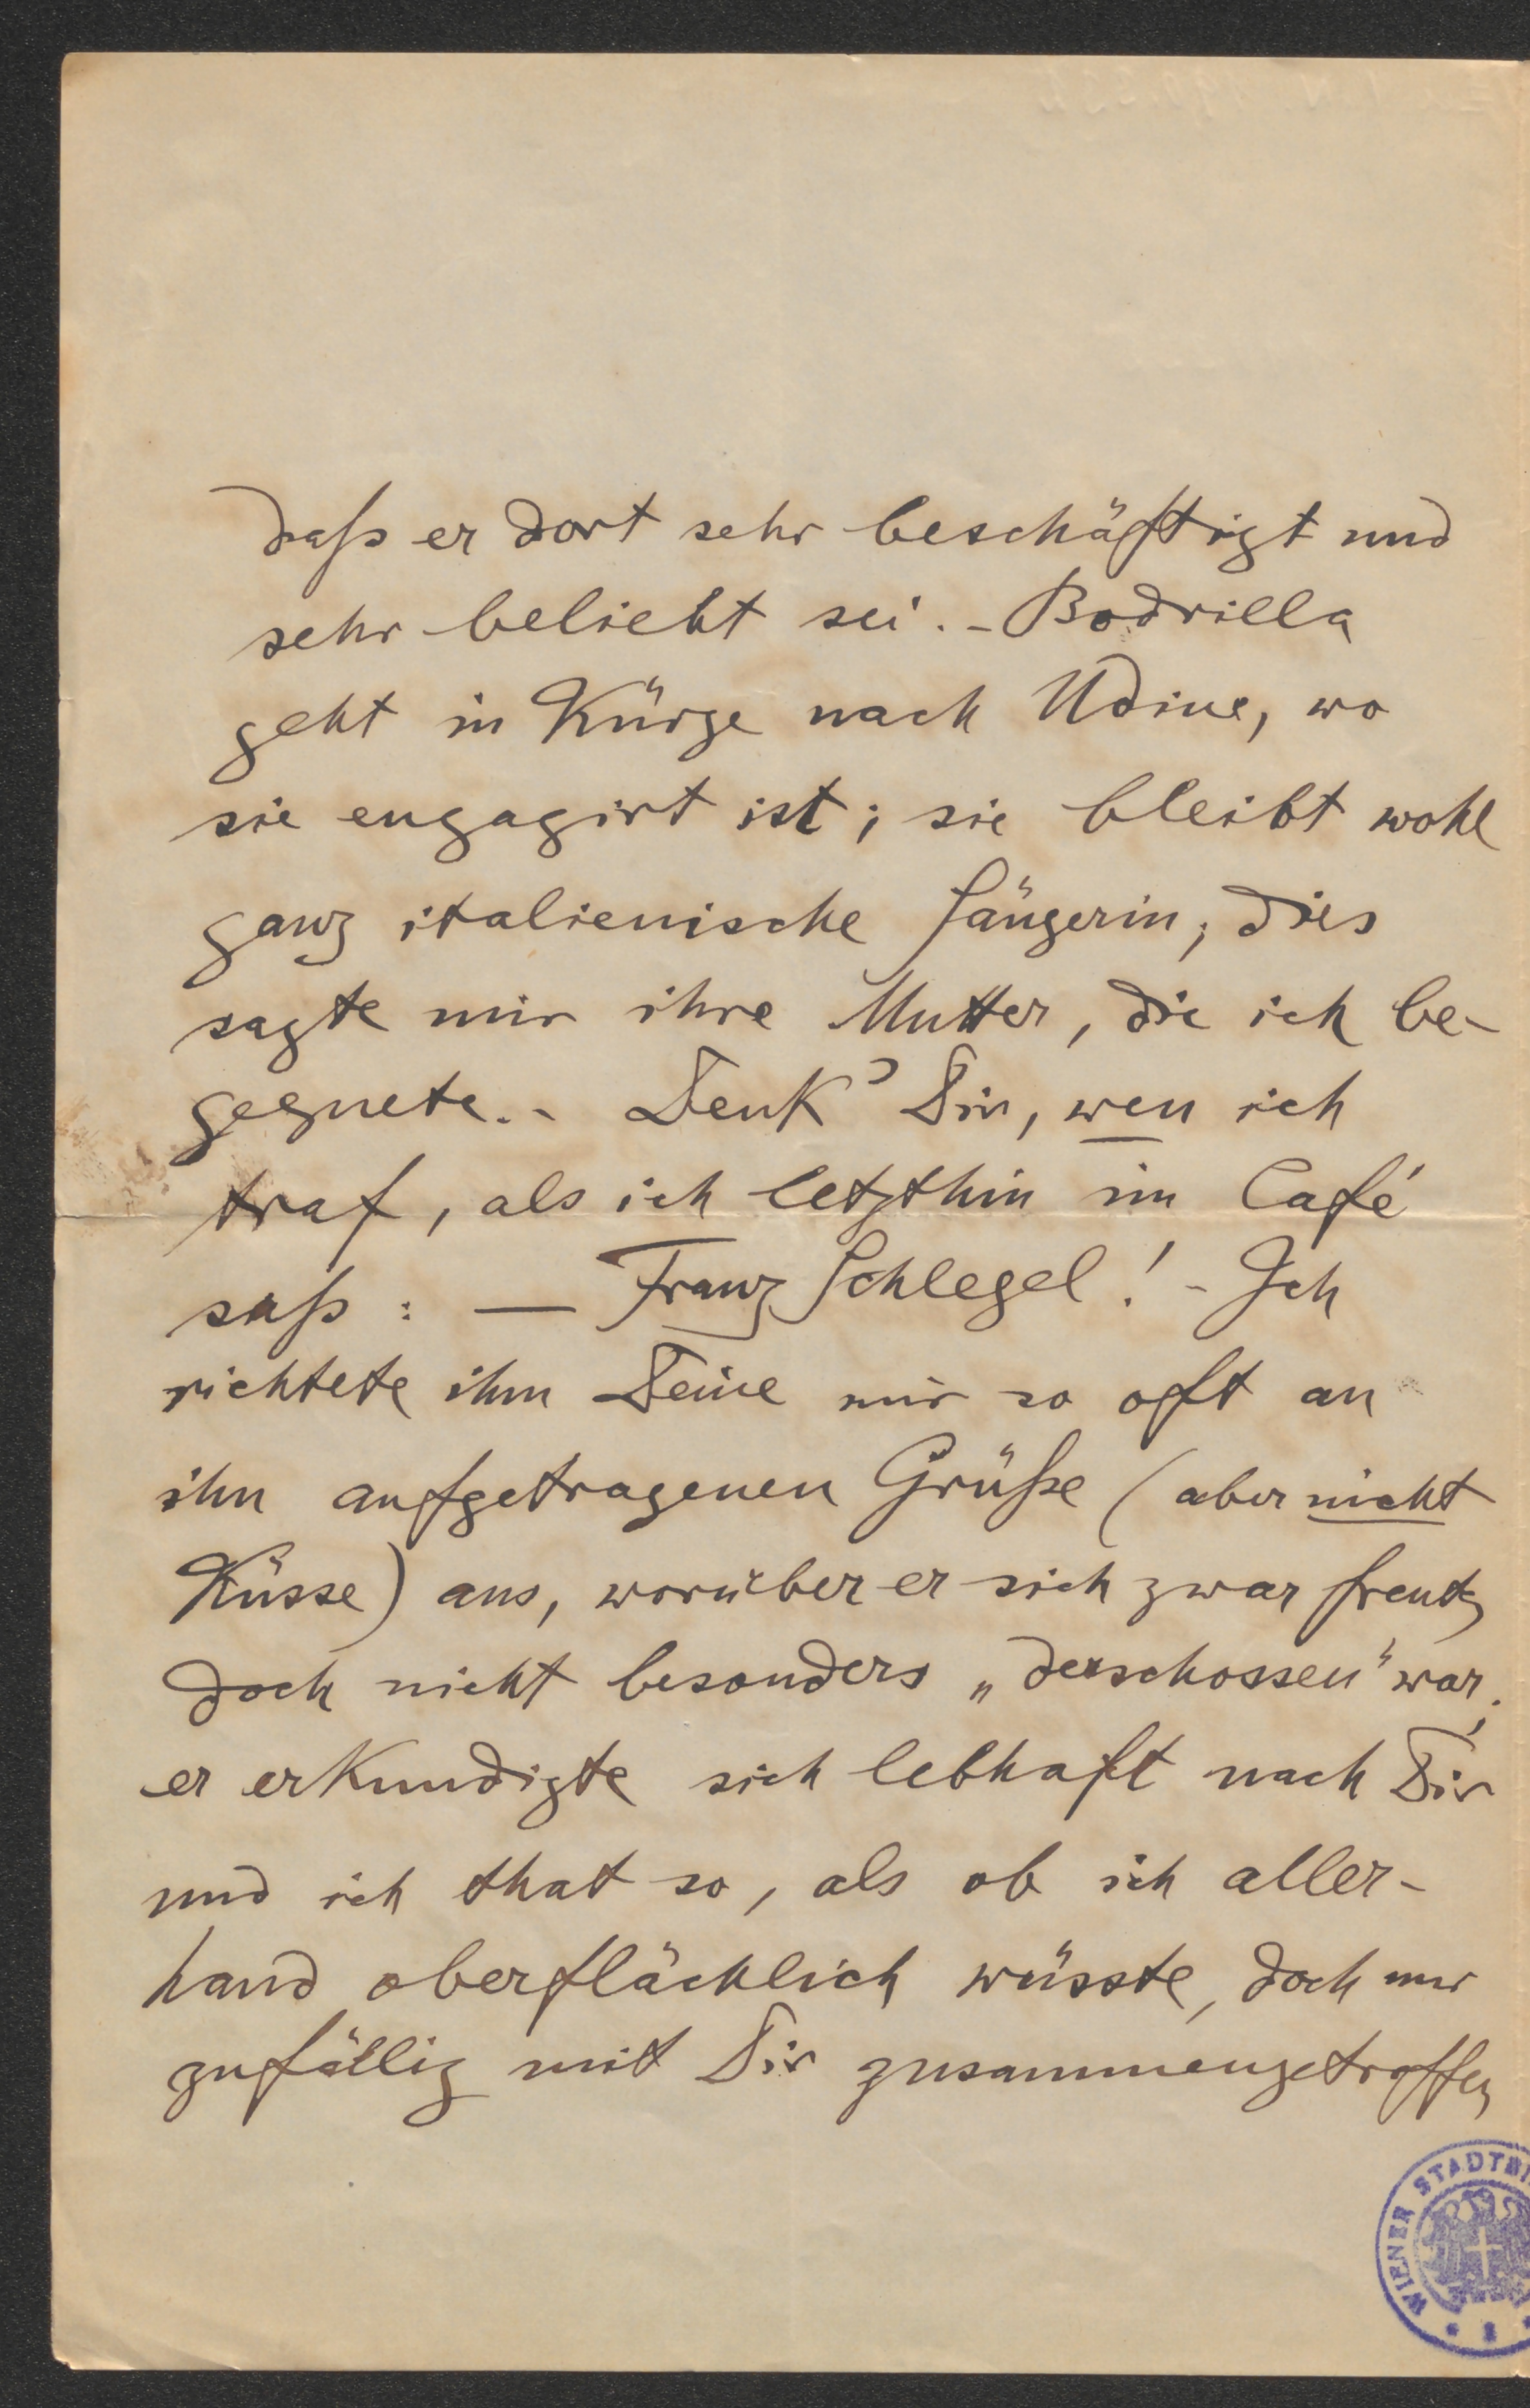 daß er dort sehr beschäftigt und
sehr beliebt sei. - Bodrilla
geht in Kürze nach Udine, wo
sie engagirt ist; sie bleibt wohl
ganz italienische Sängerin; dies
sagte mir ihre Mutter, die ich be-
gegnete. - Denk' Dir, wen ich
traf, als ich letzthin im Café
saß: — Franz Schlegel! - Ich
richtete ihm Deine mir so oft an
ihn aufgetragenen Grüße (aber nicht
Küsse) aus, worüber er sich zwar freute,
doch nicht besonders „derschossen" war;
er erkundigte sich lebhaft nach Dir
und ich that so, als ob ich aller-
hand oberflächlich wüsste, doch nur
zufällig mit Dir zusammengetroffen
WIENER STADTBI